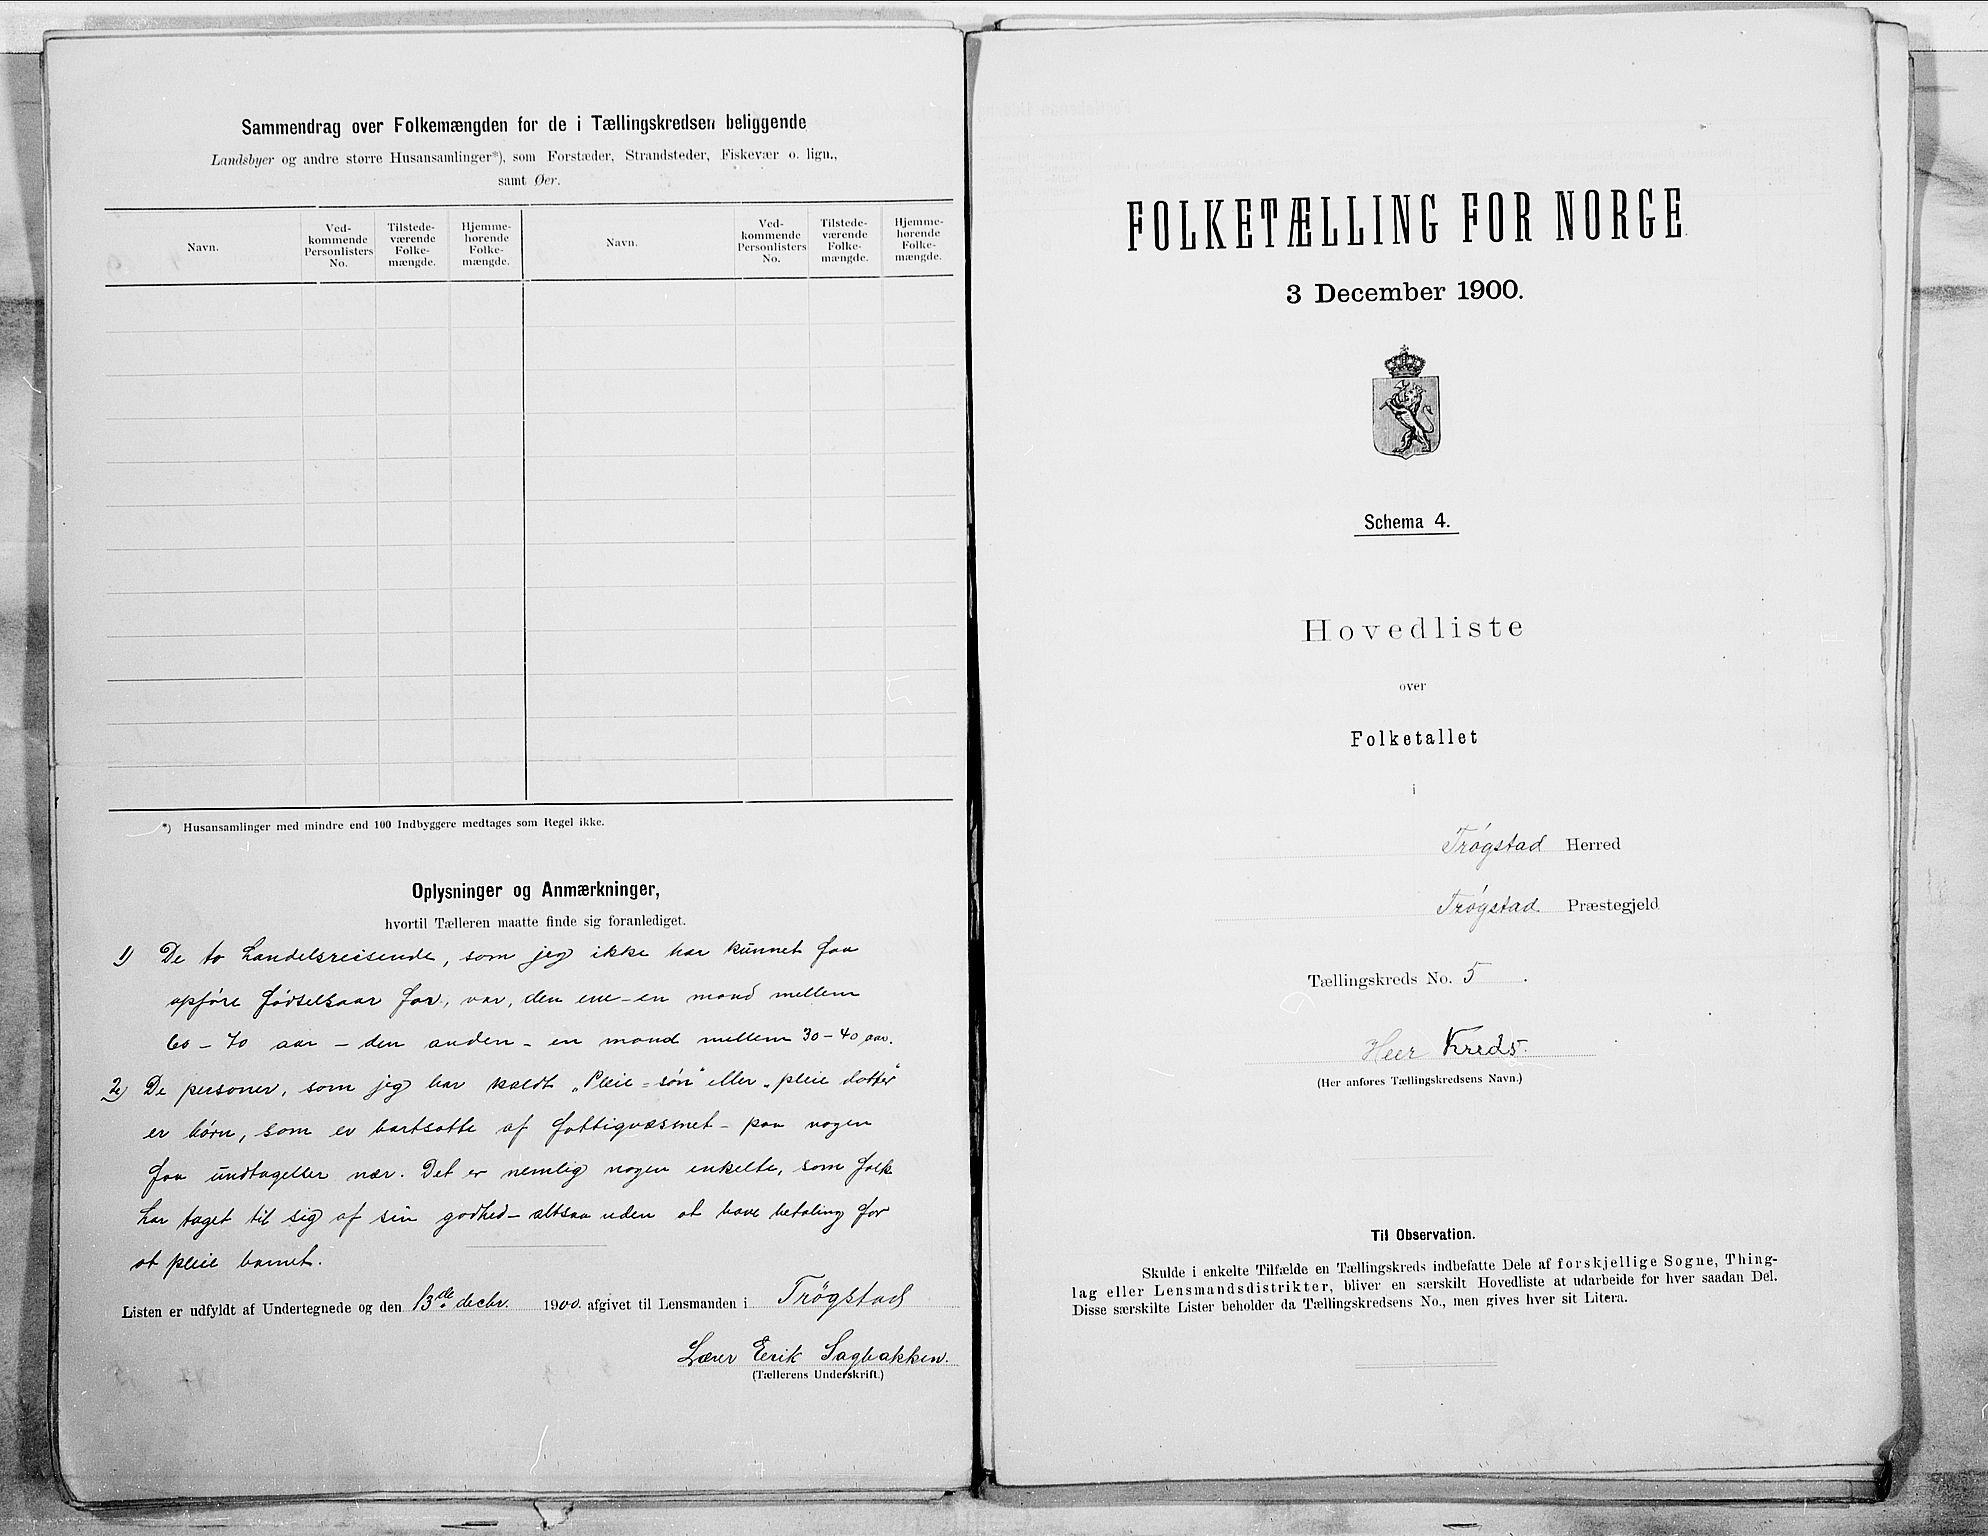 Sammendrag over Folkemængden for de i Tællingskredsen beliggende
Landsbyer og andre større Husansamlinger*), som Forstæder, Strandsteder, Fiskevær o. lign.,
samt Øer.
Navn.
Ved-
kommende
Personlisters
No.
Tilstede-
værende
Folke-
mængde.
Hjemme-
hørende
Folke-
mængde.
Navn.
Ved-
kommende
Personlisters
No.
Tilstede-
værende
Folke-
mængde.
Hjemme-
hørende
Folke-
mængde.
*) Husansamlinger med mindre end 100 Indbyggere medtages som Regel ikke.
Oplysninger og Anmærkninger,
hvortil Tælleren maatte finde sig foranlediget.
1) De to handelsreisende, som jeg ikke har kunnet faa
opføre fødselsaar for, var, den ene - en mand mellem
60 - 70 aar - den anden - en mand mellem 30 - 40 aar.
2) De personer, som jeg har kaldt „Pleie-søn" eller „pleie datter"
er børn, som er bortsatte af fattigvæsnet - paa nogen
faa undtagelser nær. Det er nemlig nogen enkelte, som folk
har taget til sig af sin godhed - altsaa uden at have betaling for
at pleie barnet.
Listen er udfyldt af Undertegnede og den 13de decbr. 1900 afgivet til Lensmanden i Trøgstad
Lærer Eerik Sagbakken.
(Tællerens Underskrift.)
FOLKETÆLLING FOR NORGE
3 December 1900.
Schema 4.
Hovedliste
over
Folketallet
i
Trøgstad Herred
Trøgstad Præstegjeld
Tællingskreds No. 5.
Heer Kreds.
(Her anføres Tællingskredsens Navn.)
Til Observation.
Skulde i enkelte Tilfælde en Tællingskreds indbefatte Dele af forskjellige Sogne, Thing-
lag eller Lensmandsdistrikter, bliver en særskilt Hovedliste at udarbeide for hver saadan Del.
Disse særskilte Lister beholder da Tællingskredsens No., men gives hver sit Litera.